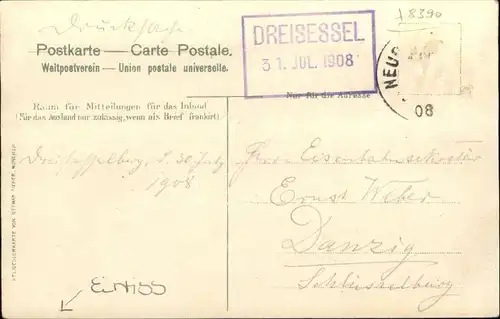 Drucksache
18390
Postkarte — Carte Postale.
Weltpostverein — Union postale universelle.
DREISESSEL
31. JUL. 1908
NEUS
08
Nur für die Adresse
Raum für Mitteilungen für das Inland
(Für das Ausland nur zulässig, wenn als Brief frankiert)
Dreisesselberg, d. 30. July
1908
Herrn Eisenbahnsekretär
Ernst Weber
Danzig
Schlüsselburg
Einriss